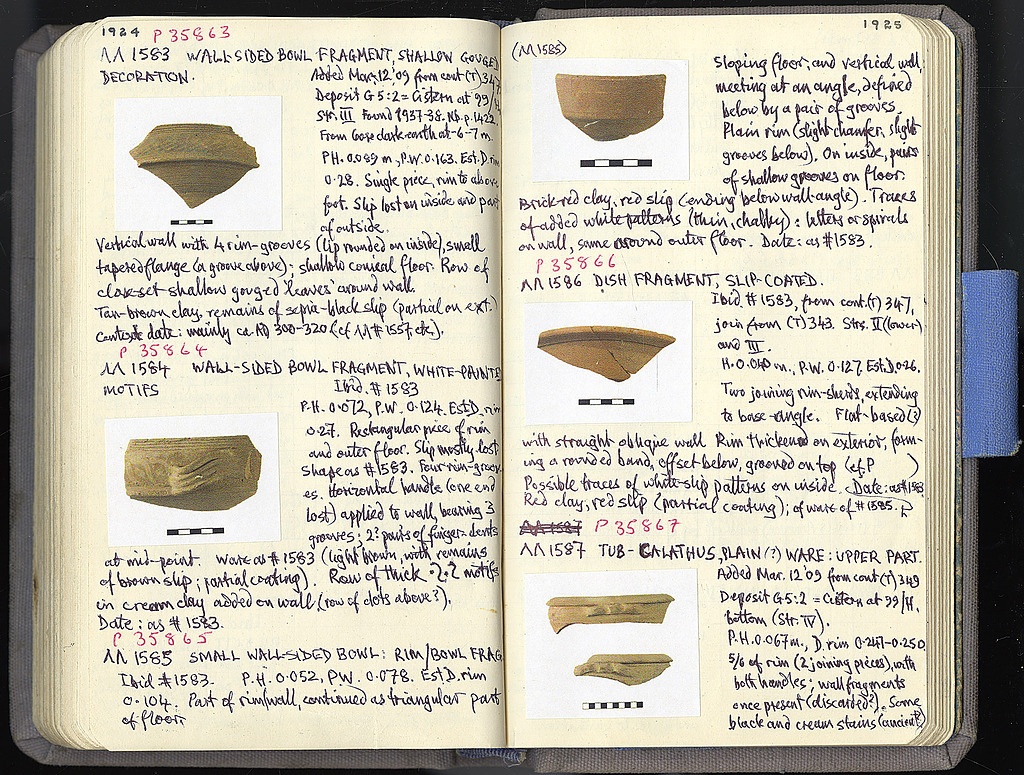 1924 P 35863
ΛΛ 1583 WALL-SIDED BOWL FRAGMENT, SHALLOW GOUGED
DECORATION.
Added Mar. 12 '09 from cont (T) 347
Deposit G 5:2 = Cistern at 99/
Str. III Found 1937-38. Nb. p. 1422
From loose dark earth at -6-7 m.
PH. 0.089 m, P.W. 0.163. Est. D. rim
0.28. Single piece, rim to above
foot. Slip lost on inside and part
of outside.
Vertical wall with 4 rim-grooves (lip rounded on inside), small
tapered flange (a groove above); shallow conical floor. Row of
close-set shallow gouged 'leaves' around wall.
Tan-brown clay, remains of sepia-black slip (partial on ext.)
Context date: mainly ca. AD 300-320 (cf ΛΛ # 1557, etc).
P 35864
ΛΛ 1584 WALL-SIDED BOWL FRAGMENT, WHITE-PAINTED
MOTIFS
Ibid. # 1583
P.H. 0.072, P.W. 0.124. Est D. rim
0.27. Rectangular piece of rim
and outer floor. Slip mostly lost
Shape as # 1583. Four rim-groov-
es. Horizontal handle (one end
lost) applied to wall, bearing 3
grooves; 2? pairs of finger-dents
at mid-point. Ware as # 1583 (light brown, with remains
of brown slip; partial coating). Row of thick motifs
in cream clay added on wall (row of dots above?).
Date: as # 1583.
P 35865
ΛΛ 1585 SMALL WALL-SIDED BOWL: RIM/BOWL FRAG
Ibid # 1583. P.H. 0.052, P.W. 0.078. Est D. rim
0.104. Part of rim/wall, continued as triangular part
of floor.
1925
(ΛΛ 1585)
Sloping floor, and vertical wall,
meeting at an angle, defined
below by a pair of grooves.
Plain rim (slight chamfer, slight
grooves below). On inside, pairs
of shallow grooves on floor.
Brick-red clay, red slip (ending below wall-angle). Traces
of added white patterns (thin, chalky): letters or spirals
on wall, same around outer floor. Date: as # 1583.
P 35866
ΛΛ 1586 DISH FRAGMENT, SLIP-COATED.
Ibid # 1583, from cont. (T) 347,
join from (T) 343. Strs. II (lower)
and III.
H. 0.040 m., P.W. 0.127. Est D. 0.26.
Two joining rim-sherds, extending
to base-angle. Flat-based (?)
with straight oblique wall Rim thickened on exterior, form-
ing a rounded band, offset below, grooved on top (cf. P )
Possible traces of white-slip patterns on inside. Date: as # 1583
Red clay, red slip (partial coating); cf ware of # 1585.
ΛΛ 1587 P 35867
ΛΛ 1587 TUB-CALATHUS, PLAIN (?) WARE: UPPER PART.
Added Mar. 12 '09 from cont (T) 349
Deposit G 5:2 = Cistern at 99/H,
bottom (Str. IV).
P.H. 0.067 m., D. rim 0.247-0.250
5/6 of rim (2 joining pieces), with
both handles; wall fragments
once present (discarded?). Some
black and cream stains (ancient?)